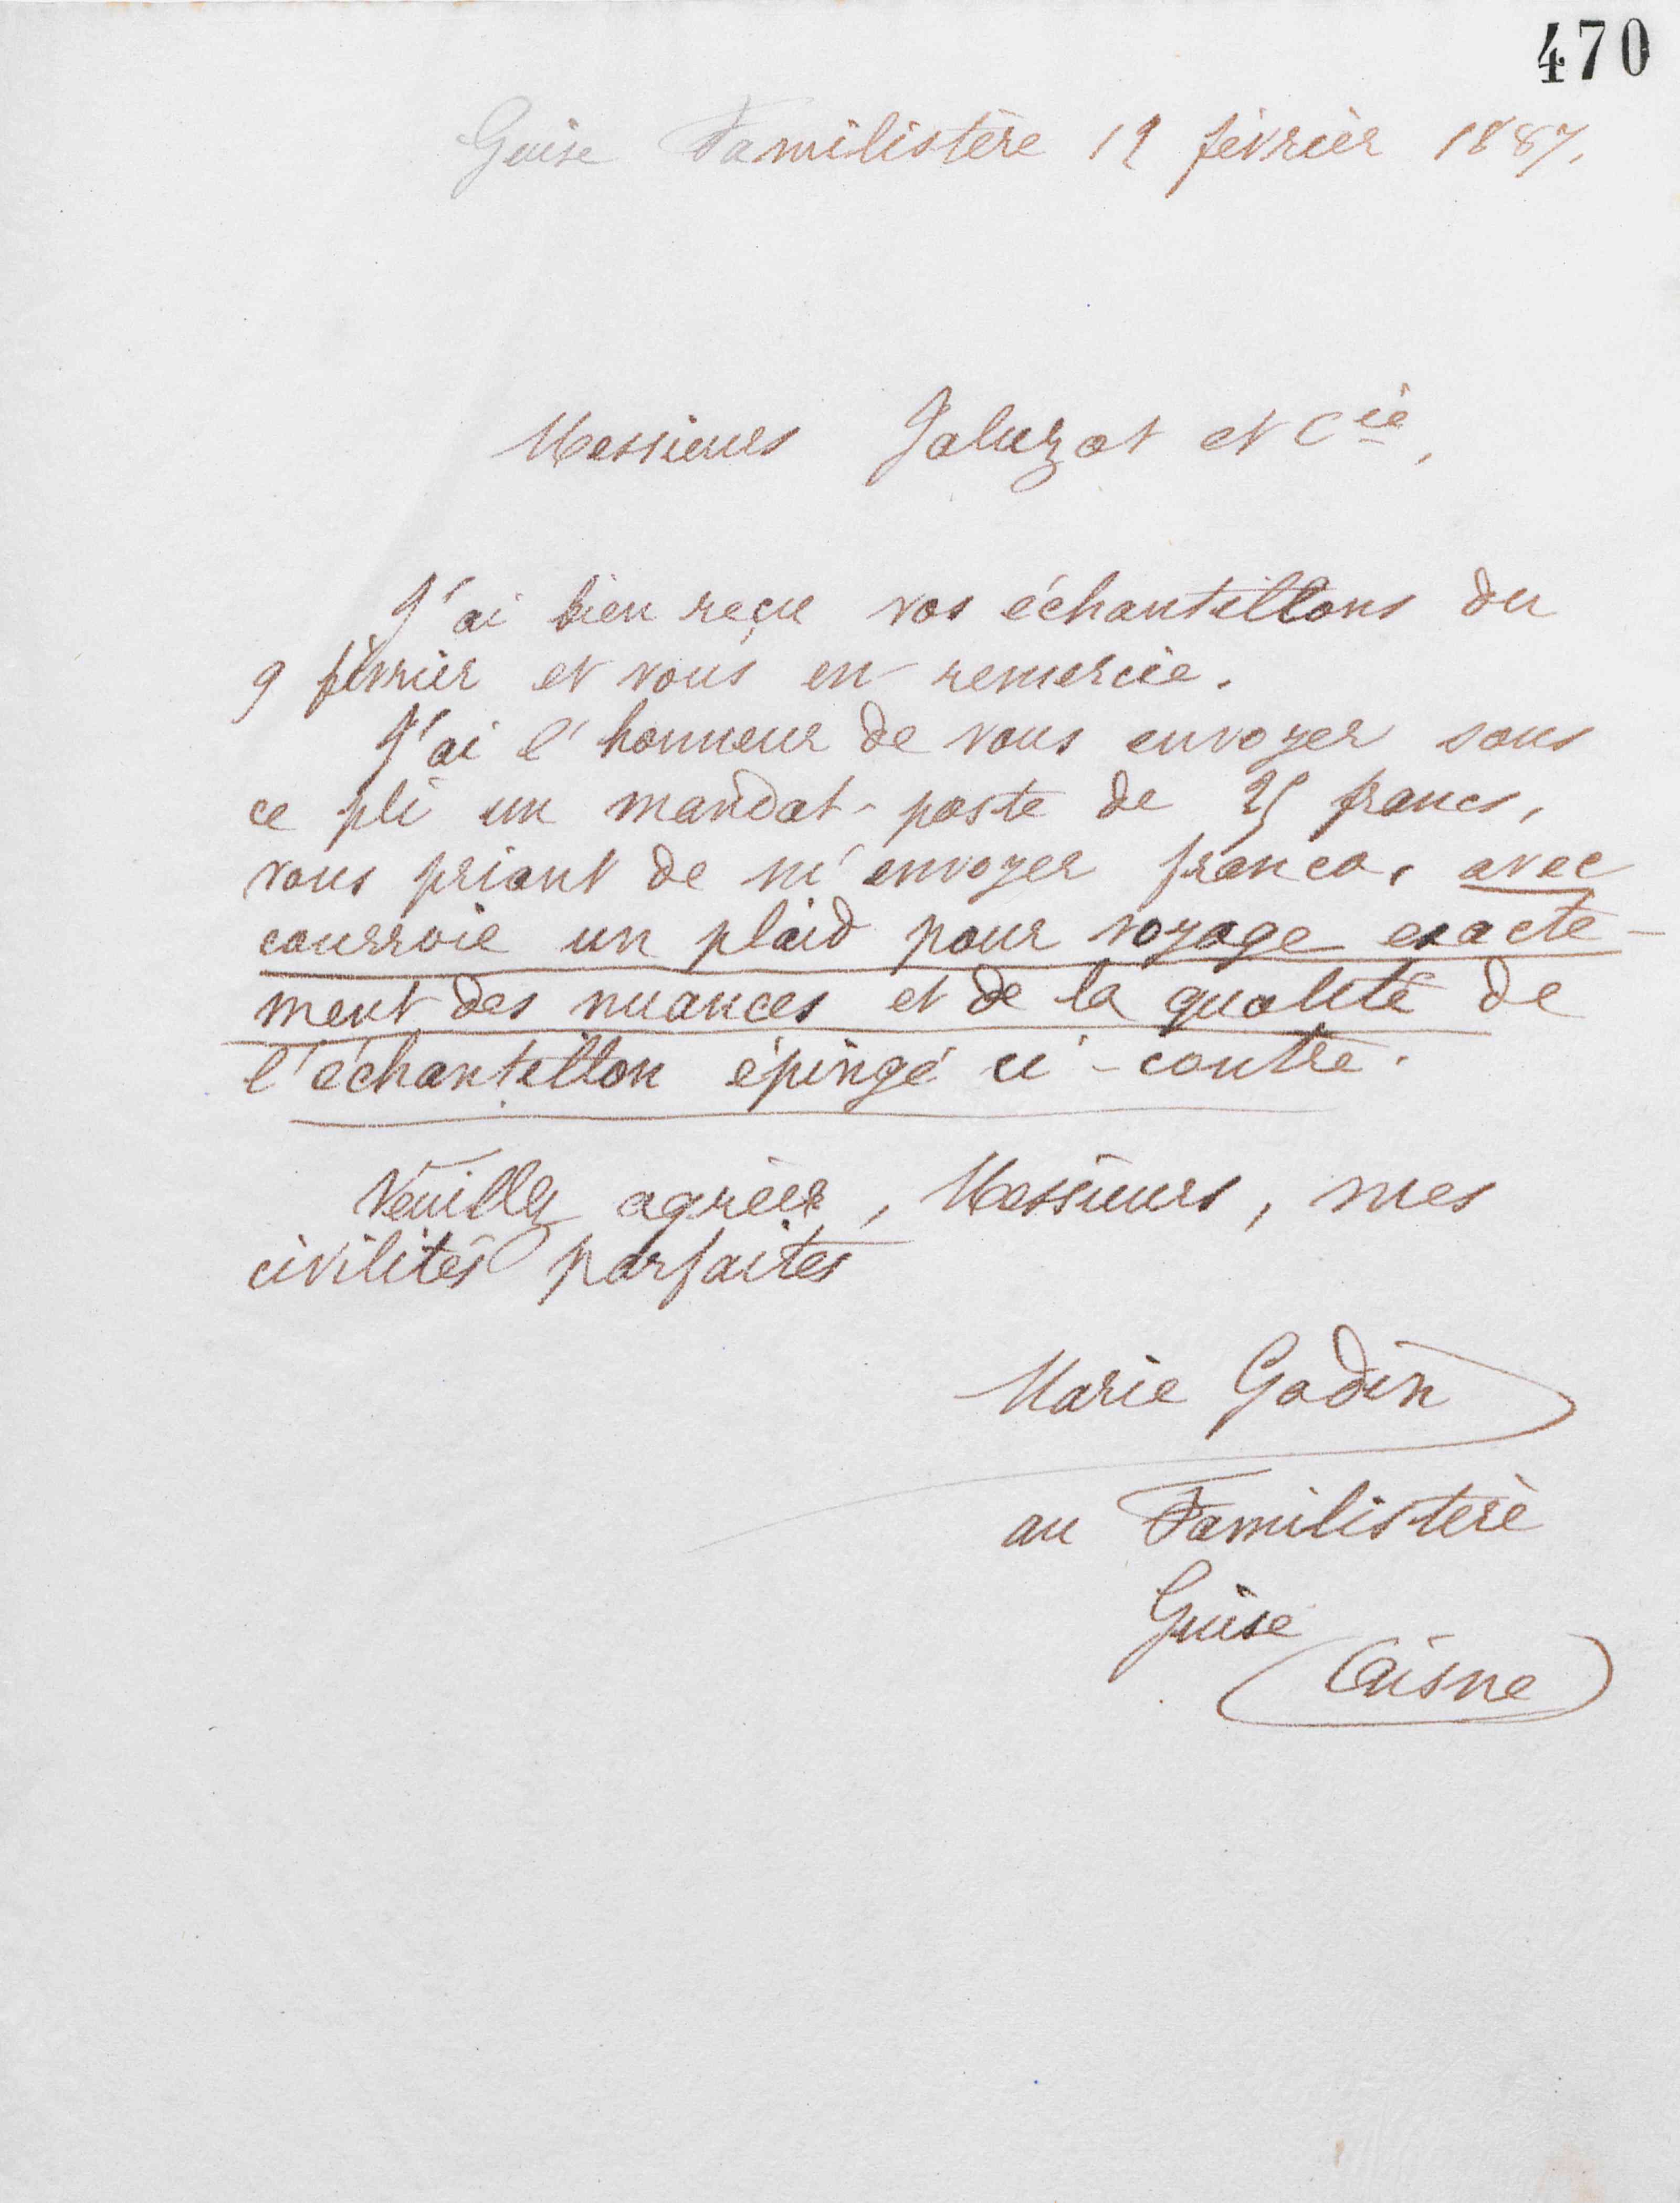 470
Guise Familistère 12 février 1887.
Messieurs Jaluzot et Cie,
J'ai bien reçu vos échantillons du
9 février et vous en remercie.
J'ai l'honneur de vous envoyer sous
ce pli un mandat-poste de 25 francs,
vous priant de m'envoyer franco, avec
courroie un plaid pour voyage exacte-
ment des nuances et de la qualité de
l'échantillon épingé ci-contre.
Veuillez agréer, Messieurs, mes
civilités parfaites
Marie Godin
au Familistère
Guise
(Aisne)